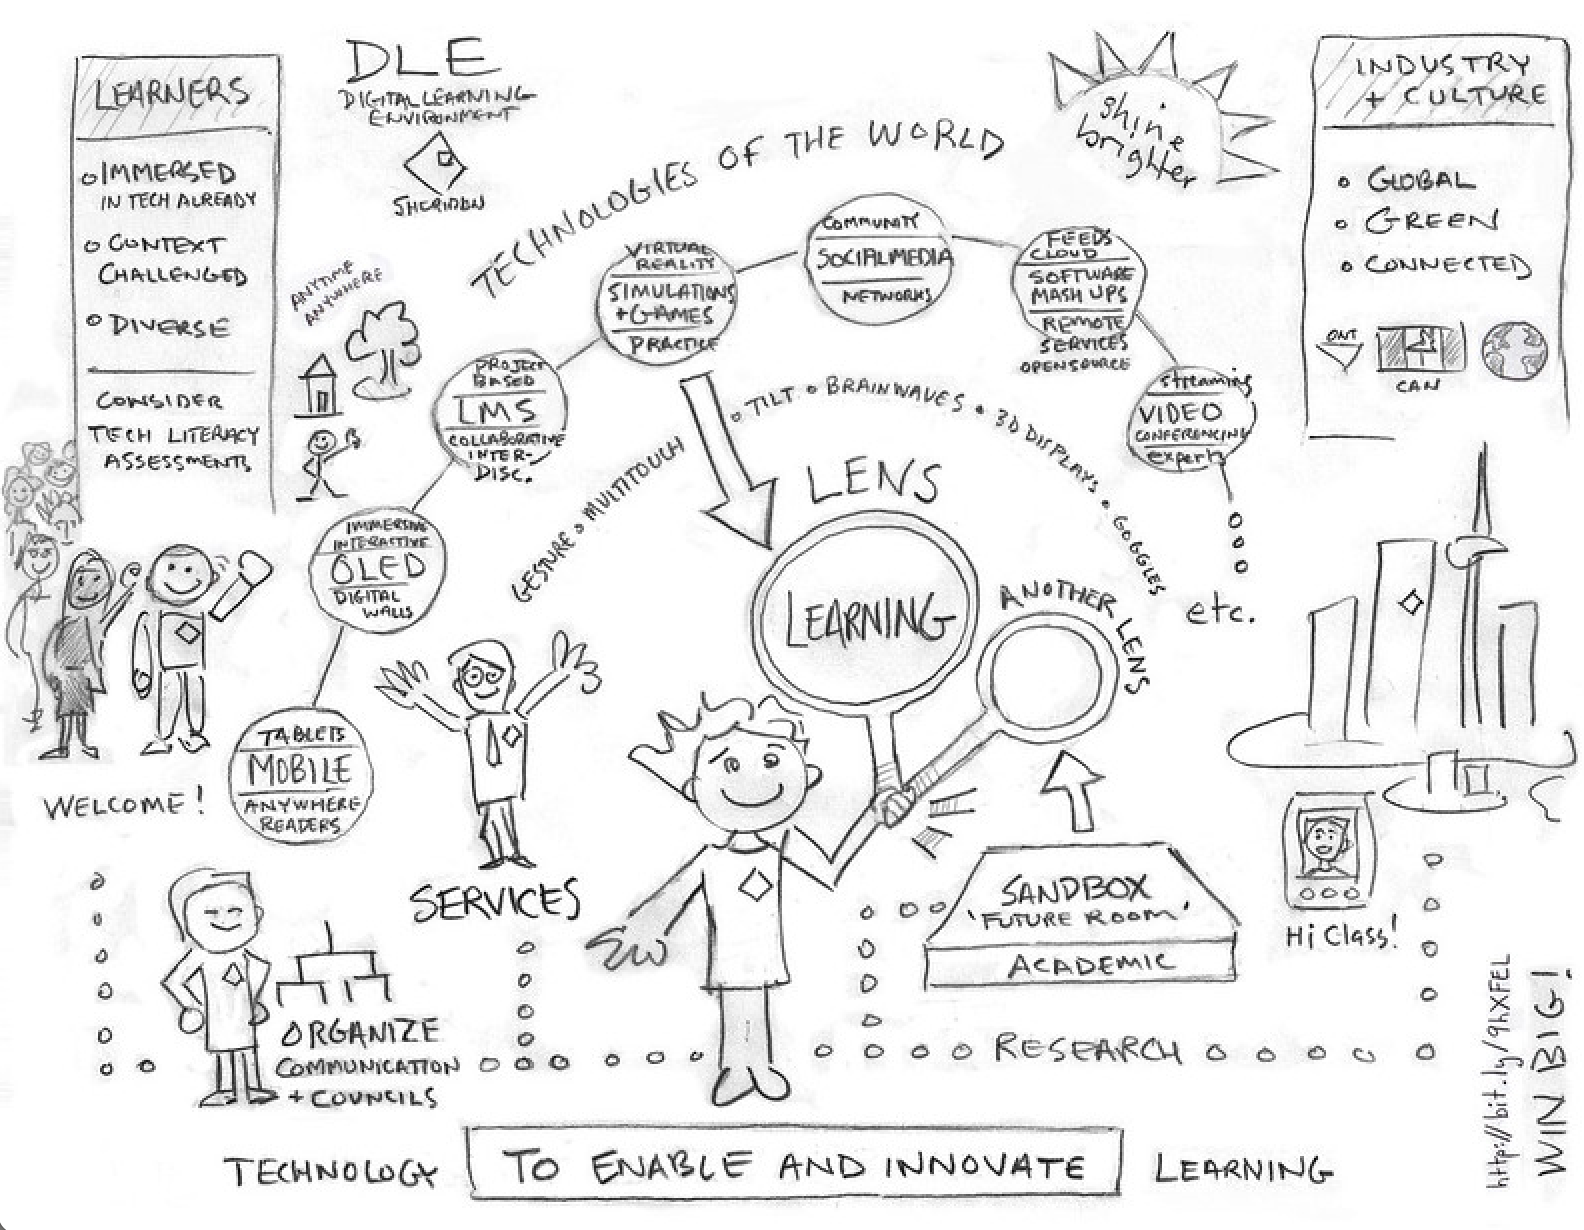 LEARNERS
IMMERSED
IN TECH ALREADY
CONTEXT
CHALLENGED
DIVERSE
CONSIDER
TECH LITERACY
ASSESSMENTS
DLE
DIGITAL LEARNING
ENVIRONMENT
SHERIDAN
ANYTIME
ANYWHERE
TECHNOLOGIES OF THE WORLD
shine
brighter
INDUSTRY
+ CULTURE
GLOBAL
GREEN
CONNECTED
ONT
CAN
TABLETS
MOBILE
ANYWHERE
READERS
IMMERSIVE
INTERACTIVE
OLED
DIGITAL
WALLS
PROJECT
BASED
LMS
COLLABORATIVE
INTER-
DISC.
VIRTUAL
REALITY
SIMULATIONS
+ GAMES
PRACTICE
COMMUNITY
SOCIAL MEDIA
NETWORKS
FEEDS
CLOUD
SOFTWARE
MASH UPS
REMOTE
SERVICES
OPENSOURCE
streaming
VIDEO
CONFERENCING
experts
etc.
GESTURE o MULTITOUCH o TILT o BRAINWAVES o 3D DISPLAYS o GOGGLES
LENS
LEARNING
ANOTHER LENS
WELCOME!
SERVICES
ORGANIZE
COMMUNICATION
+ COUNCILS
SANDBOX
'FUTURE ROOM'
ACADEMIC
RESEARCH
Hi Class!
http://bit.ly/9hXFEL
WIN BIG!
TECHNOLOGY TO ENABLE AND INNOVATE LEARNING